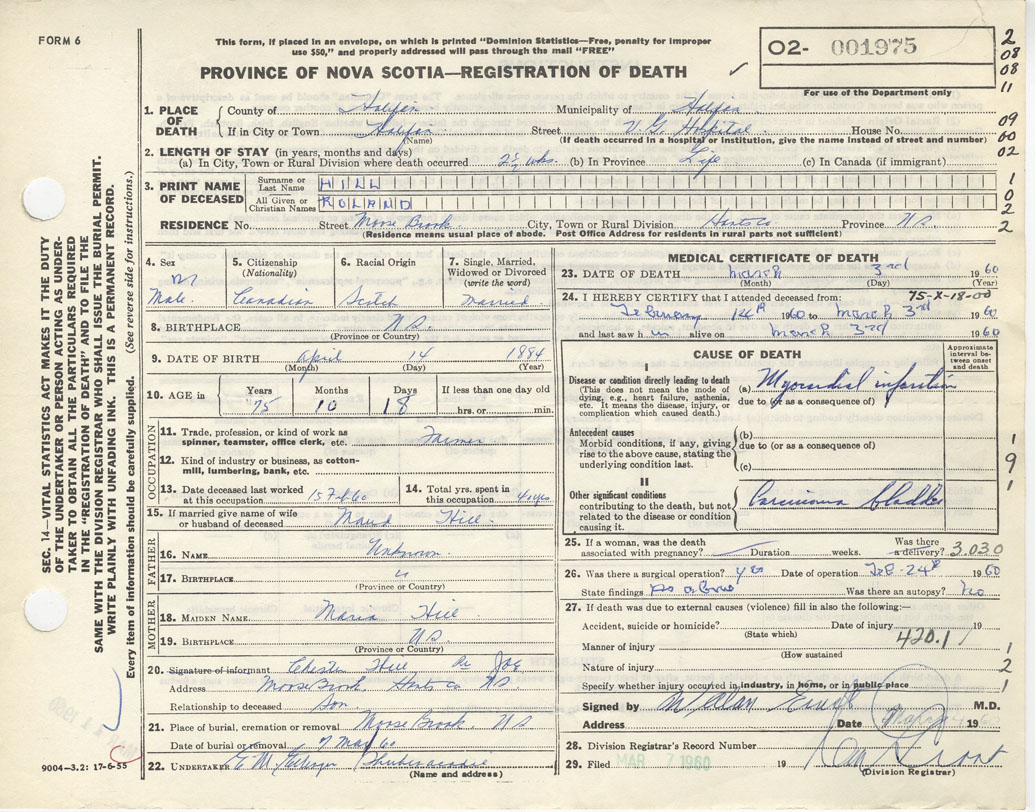 FORM 6
This form, if placed in an envelope, on which is printed "Dominion Statistics—Free, penalty for improper
use $50," and properly addressed will pass through the mail "FREE"
PROVINCE OF NOVA SCOTIA—REGISTRATION OF DEATH ✓
O2- 001975
For use of the Department only
2
08
08
11
09
60
02
1
0
2
2
1. PLACE OF DEATH
County of Halifax Municipality of Halifax
If in City or Town Halifax Street V.G. Hospital House No.
(Name) (If death occurred in a hospital or institution, give the name instead of street and number)
2. LENGTH OF STAY (in years, months and days)
(a) In City, Town or Rural Division where death occurred 2½ wks. (b) In Province Life (c) In Canada (if immigrant)
3. PRINT NAME OF DECEASED
Surname or Last Name HILL
All Given or Christian Names ROLAND
RESIDENCE No. Street Moose Brook City, Town or Rural Division Hants Co. Province NS
(Residence means usual place of abode. Post Office Address for residents in rural parts not sufficient)
4. Sex
M
Male
5. Citizenship
(Nationality)
Canadian
6. Racial Origin
Scotch
7. Single, Married, Widowed or Divorced
(write the word)
Married
8. BIRTHPLACE NS.
(Province or Country)
9. DATE OF BIRTH April 14 1884
(Month) (Day) (Year)
10. AGE in
Years Months Days If less than one day old
75 10 18 hrs. or min.
OCCUPATION
11. Trade, profession, or kind of work as
spinner, teamster, office clerk, etc. Farmer
12. Kind of industry or business, as cotton-
mill, lumbering, bank, etc.
13. Date deceased last worked
at this occupation 15 Feb 60
14. Total yrs. spent in
this occupation
15. If married give name of wife
or husband of deceased Maud Hill
FATHER
16. NAME Unknown
17. BIRTHPLACE "
(Province or Country)
MOTHER
18. MAIDEN NAME Maria Hill
19. BIRTHPLACE NS.
(Province or Country)
20. Signature of informant Chester Hill
Address Moose Brook, Hants Co NS
Relationship to deceased Son.
21. Place of burial, cremation or removal Moose Brook, NS
Date of burial or removal 7 Mar 60
22. UNDERTAKER Shubenacadie
(Name and address)
MEDICAL CERTIFICATE OF DEATH
23. DATE OF DEATH March 3rd 1960
(Month) (Day) (Year)
24. I HEREBY CERTIFY that I attended deceased from: 75-X-18-00
February 14th 1960 to March 3rd 1960
and last saw h im alive on March 3rd 1960
CAUSE OF DEATH
Approximate interval between onset and death
I
Disease or condition directly leading to death
(This does not mean the mode of
dying, e.g., heart failure, asthenia,
etc. It means the disease, injury, or
complication which caused death.)
(a) Myocardial infarction
due to (or as a consequence of)
Antecedent causes
Morbid conditions, if any, giving
rise to the above cause, stating the
underlying condition last.
(b)
due to (or as a consequence of)
(c)
II
Other significant conditions
contributing to the death, but not
related to the disease or condition
causing it.
Carcinoma bladder
1
9
1
25. If a woman, was the death
associated with pregnancy? Duration weeks. Was there
a delivery? 3.030
26. Was there a surgical operation? yes Date of operation Feb-24th 1960
State findings as above Was there an autopsy? No
27. If death was due to external causes (violence) fill in also the following:—
Accident, suicide or homicide? Date of injury 19
(State which)
Manner of injury 420.1
(How sustained
Nature of injury
1
2
1
Specify whether injury occurred in industry, in home, or in public place
Signed by M.D.
Address Date 19
28. Division Registrar's Record Number
29. Filed MAR 7 1960 19
(Division Registrar)
SEC. 14—VITAL STATISTICS ACT MAKES IT THE DUTY
OF THE UNDERTAKER OR PERSON ACTING AS UNDER-
TAKER TO OBTAIN ALL THE PARTICULARS REQUIRED
IN THE "REGISTRATION OF DEATH" AND TO FILE THE
SAME WITH THE DIVISION REGISTRAR WHO SHALL ISSUE THE BURIAL PERMIT.
WRITE PLAINLY WITH UNFADING INK. THIS IS A PERMANENT RECORD.
Every item of information should be carefully supplied. (See reverse side for instructions.)
9004-3.2: 17-6-55